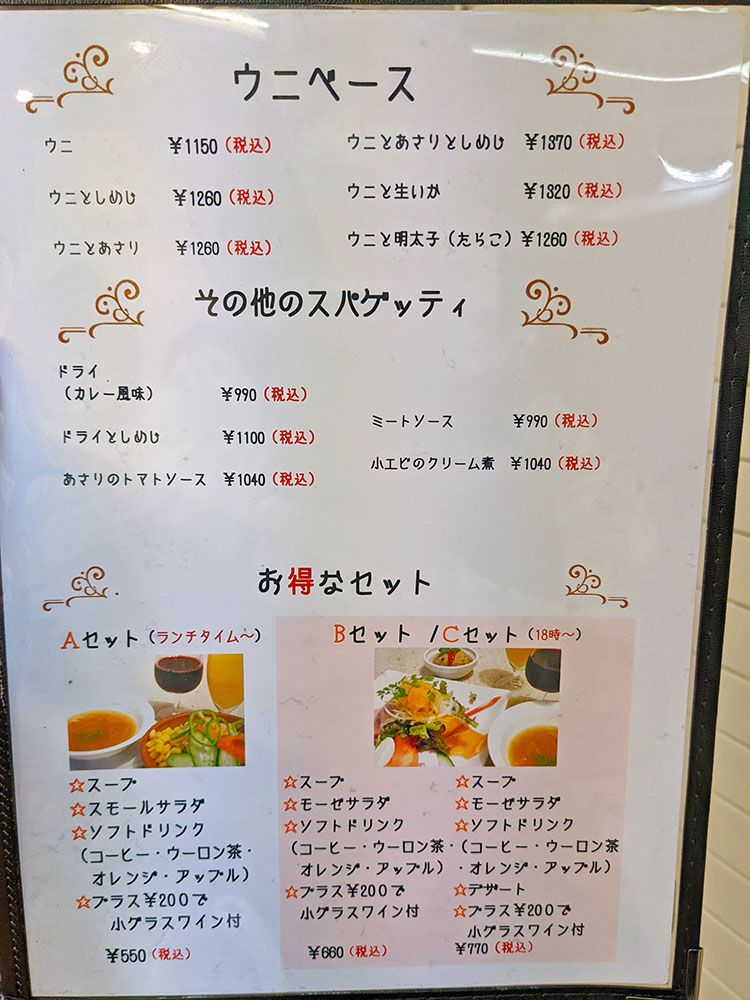 ウニベース
ウニ ¥1150（税込）
ウニとしめじ ¥1260（税込）
ウニとあさり ¥1260（税込）
ウニとあさりとしめじ ¥1370（税込）
ウニと生いか ¥1320（税込）
ウニと明太子（たらこ）¥1260（税込）
その他のスパゲッティ
ドライ
（カレー風味） ¥990（税込）
ドライとしめじ ¥1100（税込）
あさりのトマトソース ¥1040（税込）
ミートソース ¥990（税込）
小エビのクリーム煮 ¥1040（税込）
お得なセット
Aセット（ランチタイム〜）
☆スープ
☆スモールサラダ
☆ソフトドリンク
（コーヒー・ウーロン茶・
オレンジ・アップル）
☆プラス¥200で
小グラスワイン付
¥550（税込）
Bセット /Cセット（18時〜）
☆スープ
☆モーゼサラダ
☆ソフトドリンク
（コーヒー・ウーロン茶・
オレンジ・アップル）
☆プラス¥200で
小グラスワイン付
¥660（税込）
☆スープ
☆モーゼサラダ
☆ソフトドリンク
（コーヒー・ウーロン茶
・オレンジ・アップル）
☆デザート
☆プラス¥200で
小グラスワイン付
¥770（税込）